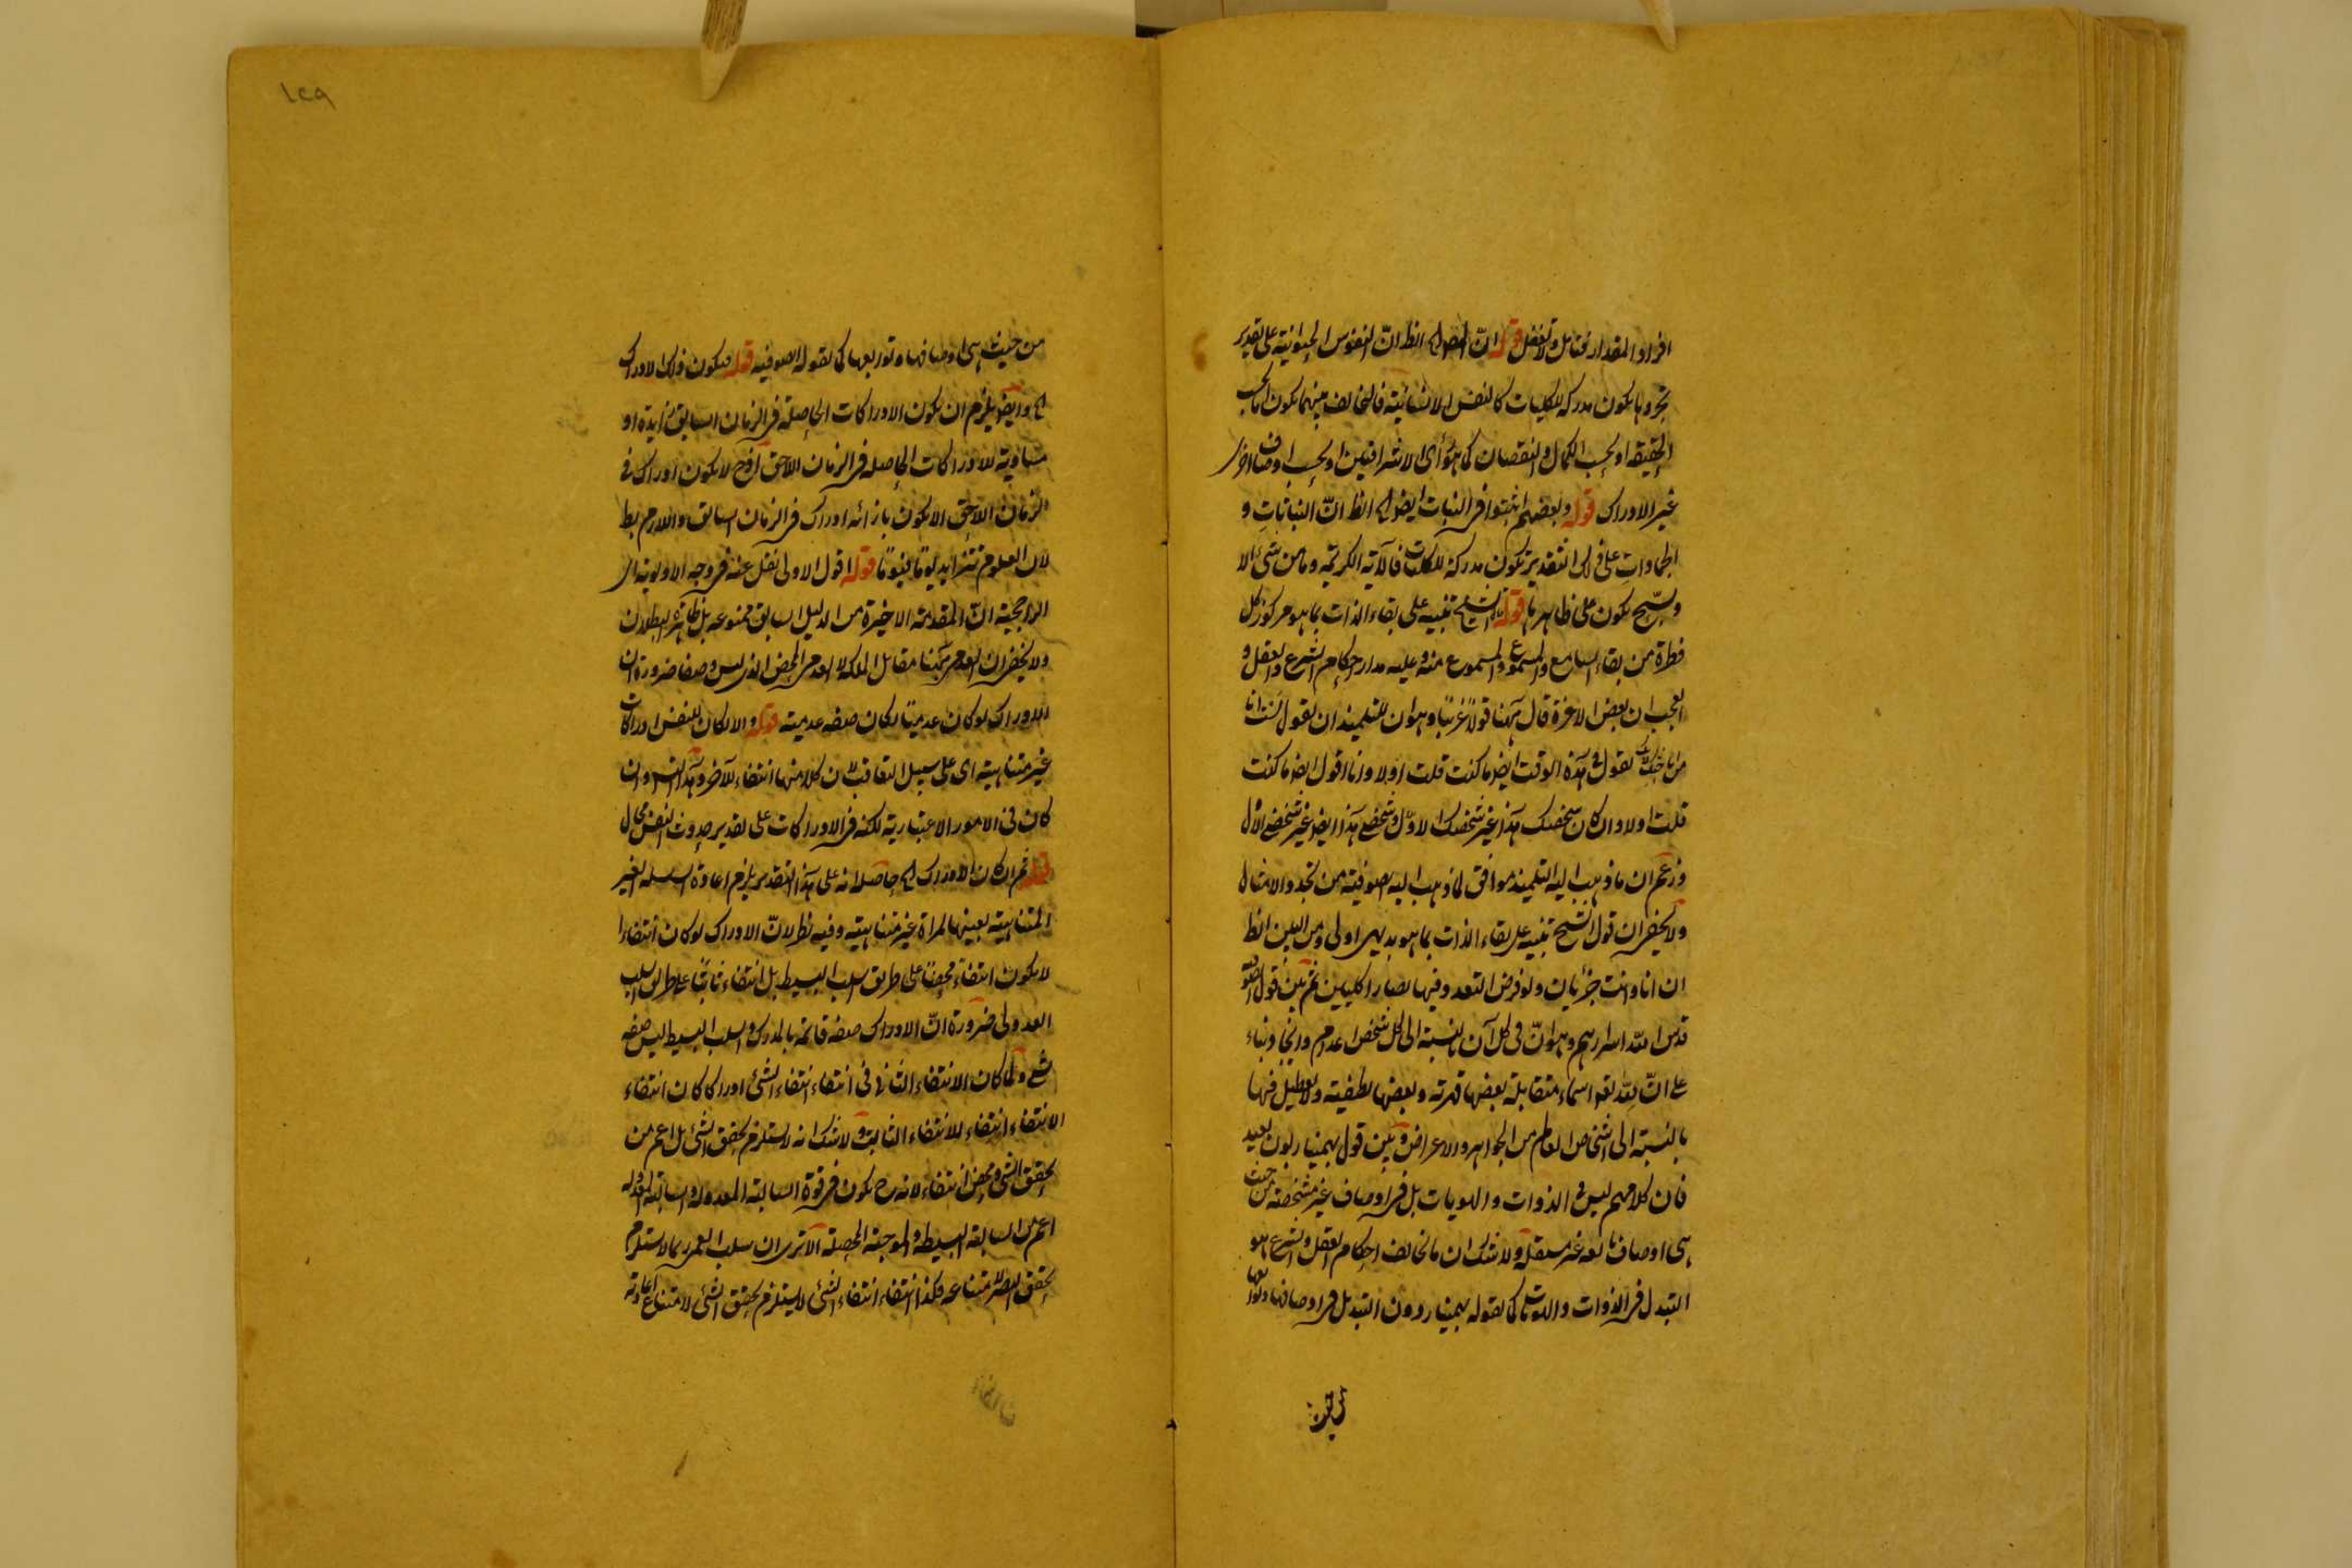 افراد المقدار فتامل ولا تغفل قوله ان الفصول الخ انظ ان النفوس الحيوانية على تقدير
تجردها يكون مدركه للكليات كالنفس الانسانية فالتخالف بينهما يكون اما بحسب
الحقيقة او بحسب الكمال والنقصان كما هو رأى الاشراقيين او بحسب اوصاف اخرى
غير الادراك قوله وبعضهم اثبتوا فى النبات ايضا الخ انظ ان النباتات و
الجمادات على ذلك التقدير تكون مدركة للكليات فالآية الكريمة وما من شئ الا
ويسبح يكون على ظاهرها قوله الشيخ تنبيه على بقاء الذات بما هو مركوز كل
فطرة من بقاء السامع والمسموع والمسموع منه وعليه مدار احكام الشرع والعقل و
العجب ان بعض الاعزة قال ههنا قولا غريبا وهو ان للتلميذ ان يقول لست انا
من باحثك بك نقول فى هذه الوقت ايضا ما كنت قلت اولا وانا اقول ايضا ما كنت
قلت اولا وان كان شخصك هذا غير شخصك الاول وشخصى هذا ايضا غير شخصى الاول
وزعم ان ما ذهب اليه التلميذ موافق لما ذهب اليه الصوفية من تجدد الامثال
ولا يخفى ان قول الشيخ تنبيه على بقاء الذات بما هو بديهى اولى ومن البين انظ
ان انا وانت جزئيان ولو فرض التعدد فيها لصارا كليين ثم بين قول الصوفية
قدس الله اسرارهم وهو ان فى كل آن بالنسبة الى كل شخص اعدام وايجاد بناء
على ان لله تعو اسماء متقابلة بعضها قهرية وبعضها لطفية ولا تعطيل فيها
بالنسبة الى اشخاص العالم من الجواهر والاعراض وبين قول بهمنيار بون بعيد
فان كلامهم ليس فى الذوات والهويات بل فى اوصاف غير مشخصة من حيث
هى اوصاف تابعه غير مستقلة ولا شك ان ما يخالف احكام العقل والشرع هو
التبدل فى الذوات والهويات كما يقوله بهمنيار دون التبدل فى اوصافها وتوابعها
من حيث
١٢٩
من حيث هى اوصافها وتوابعها كما يقوله الصوفيه قوله فيكون ذلك الادراك
الخ وايضا يلزم ان يكون الادراكات الحاصلة فى الزمان السابق زايدة او
مساوية للادراكات الحاصله فى الزمان اللاحق اذ ح لا يكون ادراك فى
الزمان اللاحق الا يكون بازائه ادراك فى الزمان السابق واللازم بط
لان العلوم تتزايد يوما فيوما قوله اقول الاولى نقل عنه فى وجه الاولوية اى
الراجحية ان المقدمة الاخيرة من الدليل السابق ممنوعه بل ظاهرة البطلان
ولا يخفى ان العدم ههنا مقابل الملكه لا العدم المحض الذى ليس وصفا ضرورة ان
الادراك لو كان عدميا لكان صفه عدمية قوله والا لكان للنفس ادراكات
غير متناهية اى على سبيل التعاقب لان كلا منها انتفاء للآخر وهذا التس وان
كان فى الامور الاعتبارية لكنه فى الادراكات على تقدير حدوث النفس محال
قوله ثم ان كان الادراك الخ حاصله انه على هذا التقدير يلزم اعادة السلسله الغير
المتناهية بعينها لمراة غير متناهية وفيه نظر لان الادراك لو كان انتفاءا
لا يكون انتفاء محضا على طريق سلب البسيط بل انتفاء ثابتا على طريق السلب
العدولى ضرورة ان الادراك صفه قائمه بالمدرك والسلب البسيط ليس صفه
شئ ولما كان الانتفاء الثانى فى انتفاء انتفاء الشئ ادراكا كان انتفاء
الانتفاء انتفاء للانتفاء الثابت ولا شك انه لا يستلزم تحقق الشئ بل اعم من
تحقق الشئ ومحض انتفاء لانه ح يكون فى قوة السالبة المعدوله والسالبة المعدوله
اعم من السالبة البسيطه والموجبة المحصلة الا ترى ان سلب العمى ربما لا يستلزم
تحقق البصر لامتناعه فكذا انتفاء انتفاء الشئ لا يستلزم تحقق الشئ لامتناع اعادته